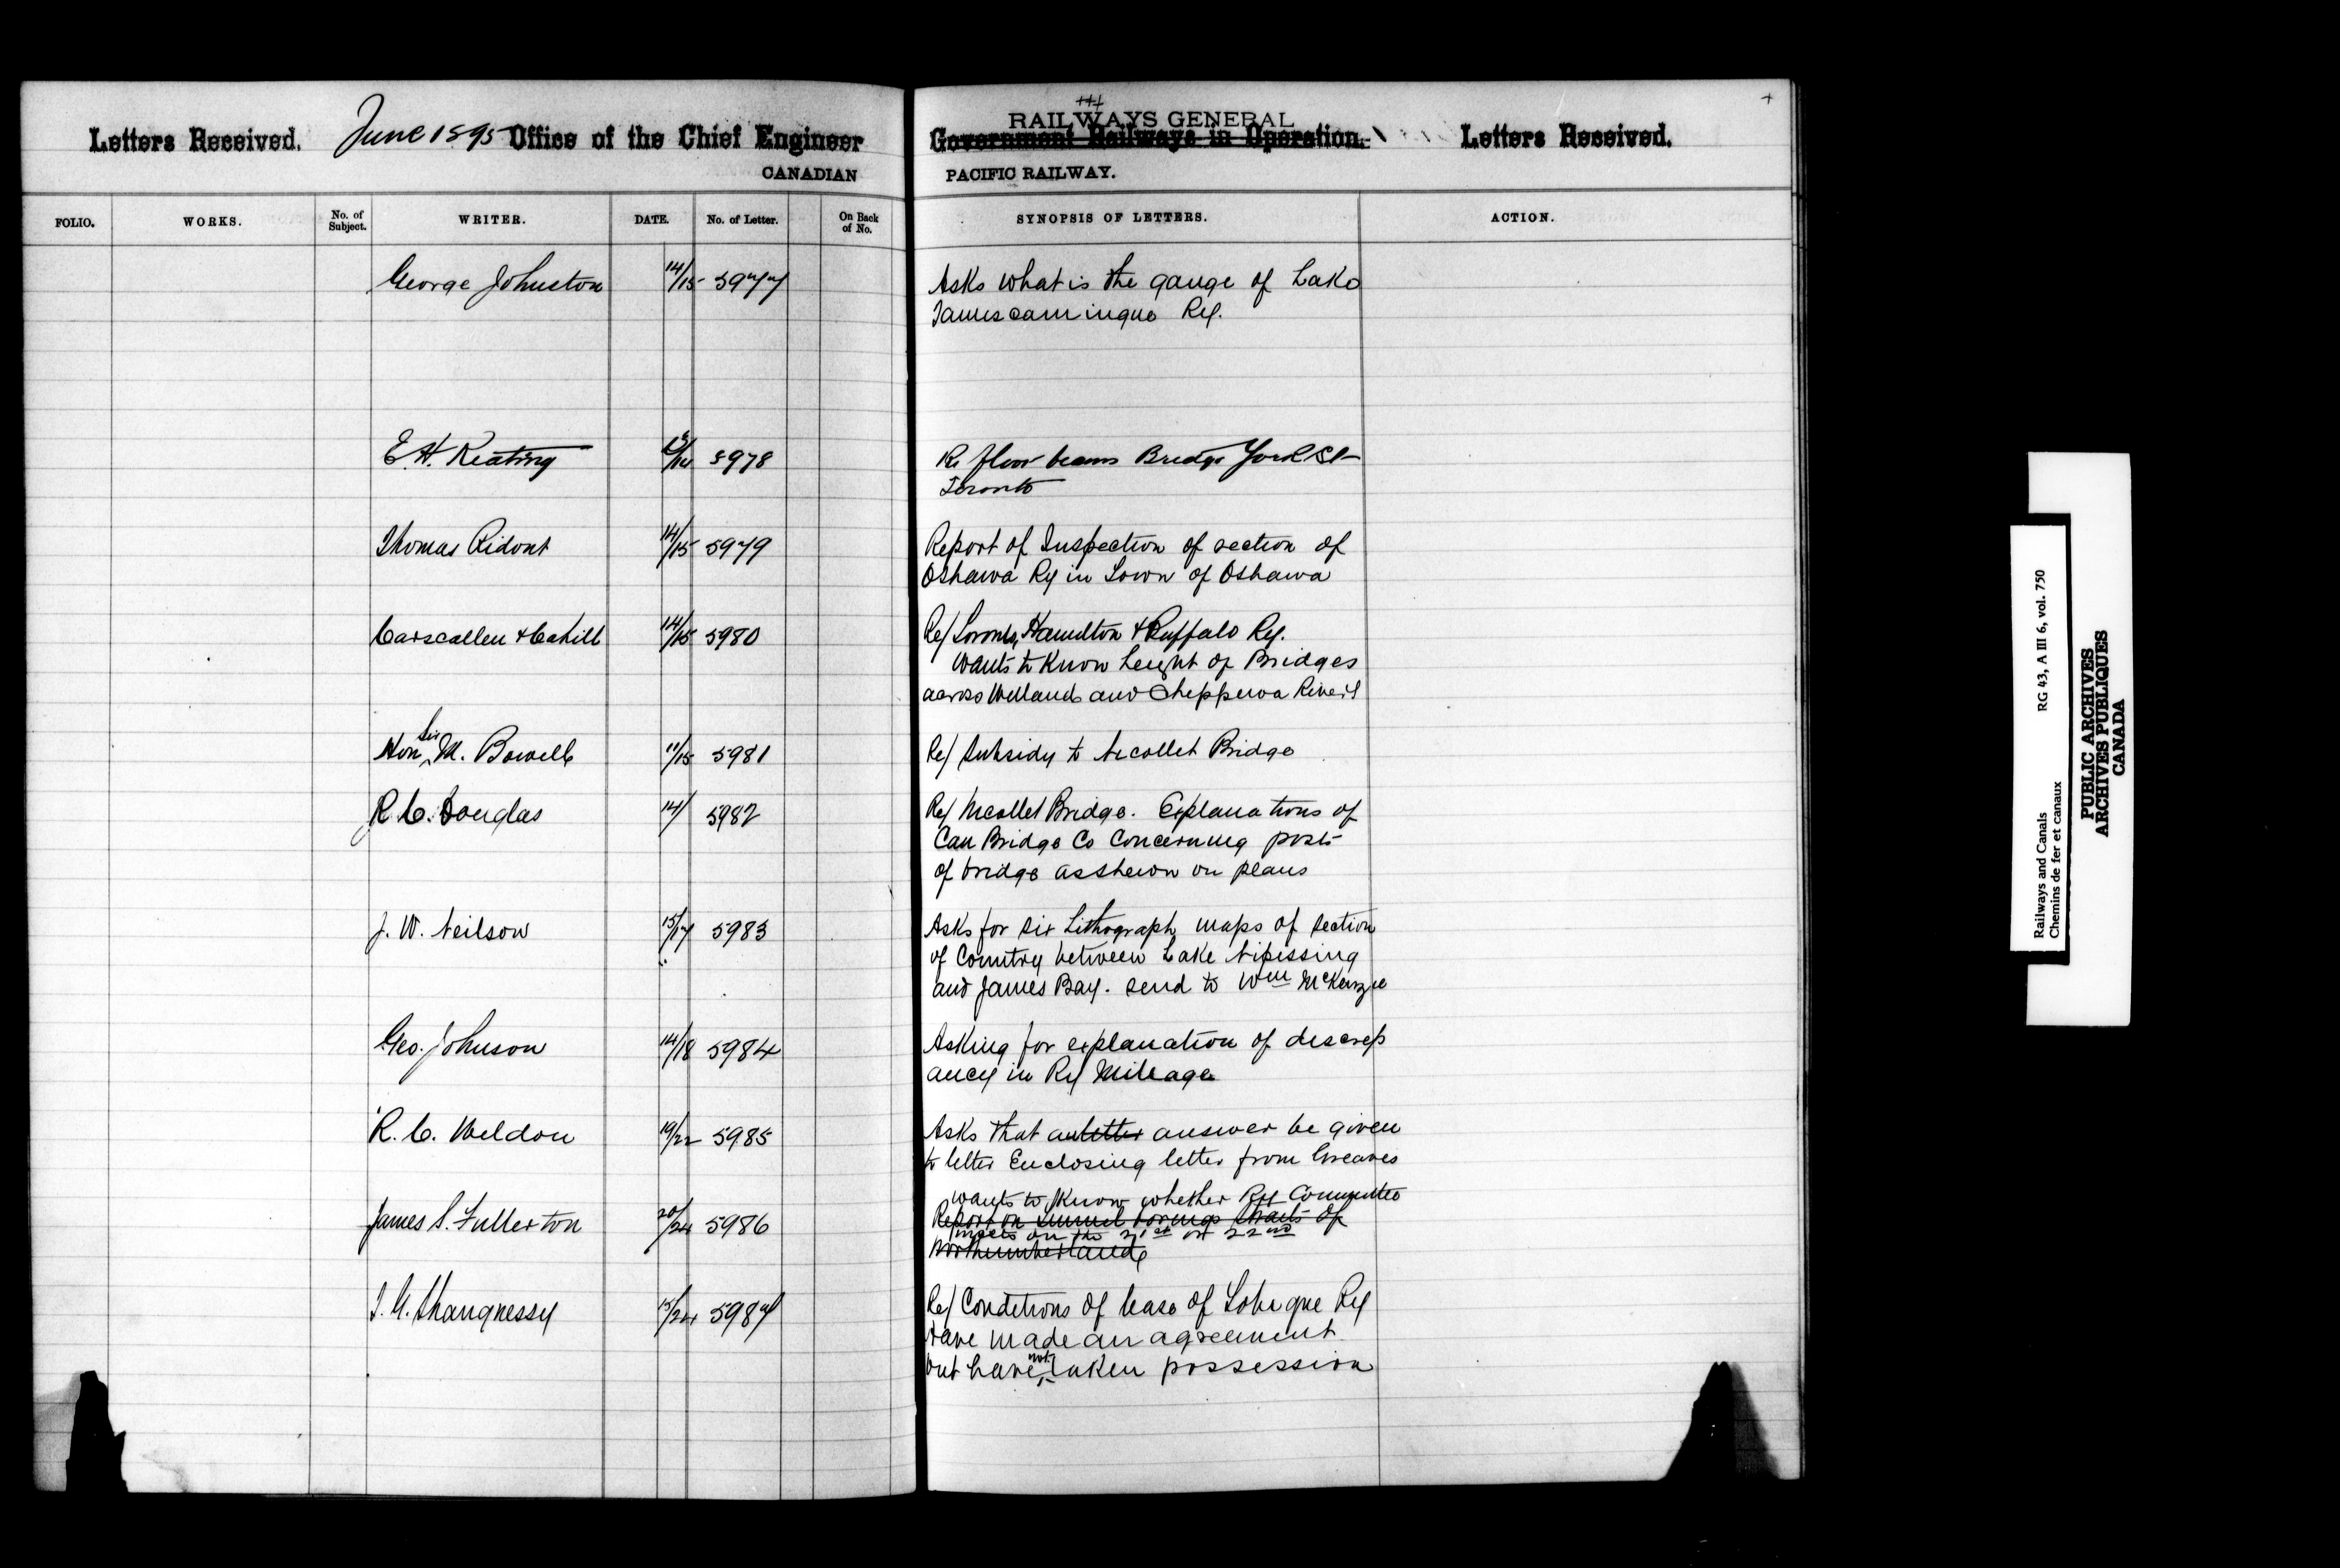 Letters Received. June 1895 Office of the Chief Engineer
CANADIAN
RAILWAYS GENERAL
Government Railways in Operation. Letters Received.
PACIFIC RAILWAY.
FOLIO. WORKS. No. of Subject. WRITER. DATE. No. of Letter. On Back of No.
SYNOPSIS OF LETTERS. ACTION.
George Johnston 14/15 5977 Asks what is the gauge of Lake
Tamescamingue Ry.
E. H. Keating /14 5978 Re floor beams Bridge York St
Toronto
Thomas Ridout 14/15 5979 Report of Inspection of section of
Oshawa Ry in Town of Oshawa
Carscallen & Cahill 14/15 5980 Re/ Toronto, Hamilton & Buffalo Ry.
wants to know height of Bridges
across Welland and Chippewa Rivers
Hon Sir M. Bowell 11/15 5981 Re/ Subsidy to Nicollet Bridge
R. C. Douglas 14/ 5982 Re/ Nicollet Bridge. Explanations of
Can Bridge Co Concerning posts
of bridge as shewn on plans
J. W. Neilson 15/17 5983 Asks for six Lithograph maps of section
of Country between Lake Nipissing
and James Bay. send to Wm McKenzie
Geo. Johnson 14/18 5984 Asking for explanation of discrep
ancy in Ry Mileage
R. C. Weldon 19/22 5985 Asks that an letter answer be given
to letter Enclosing letter from Greaves
wants to know whether Ry Committee
James S. Fullerton 20/24 5986 Report on tunnel borings Straits of
meets on the 21st or 22nd
Northumberland
T. G. Shaugnessy 15/24 5987 Re/ Conditions of lease of Tobique Ry
Have made an agreement
but have not taken possession
Railways and Canals RG 43, A III 6, vol. 750
Chemins de fer et canaux
PUBLIC ARCHIVES
ARCHIVES PUBLIQUES
CANADA